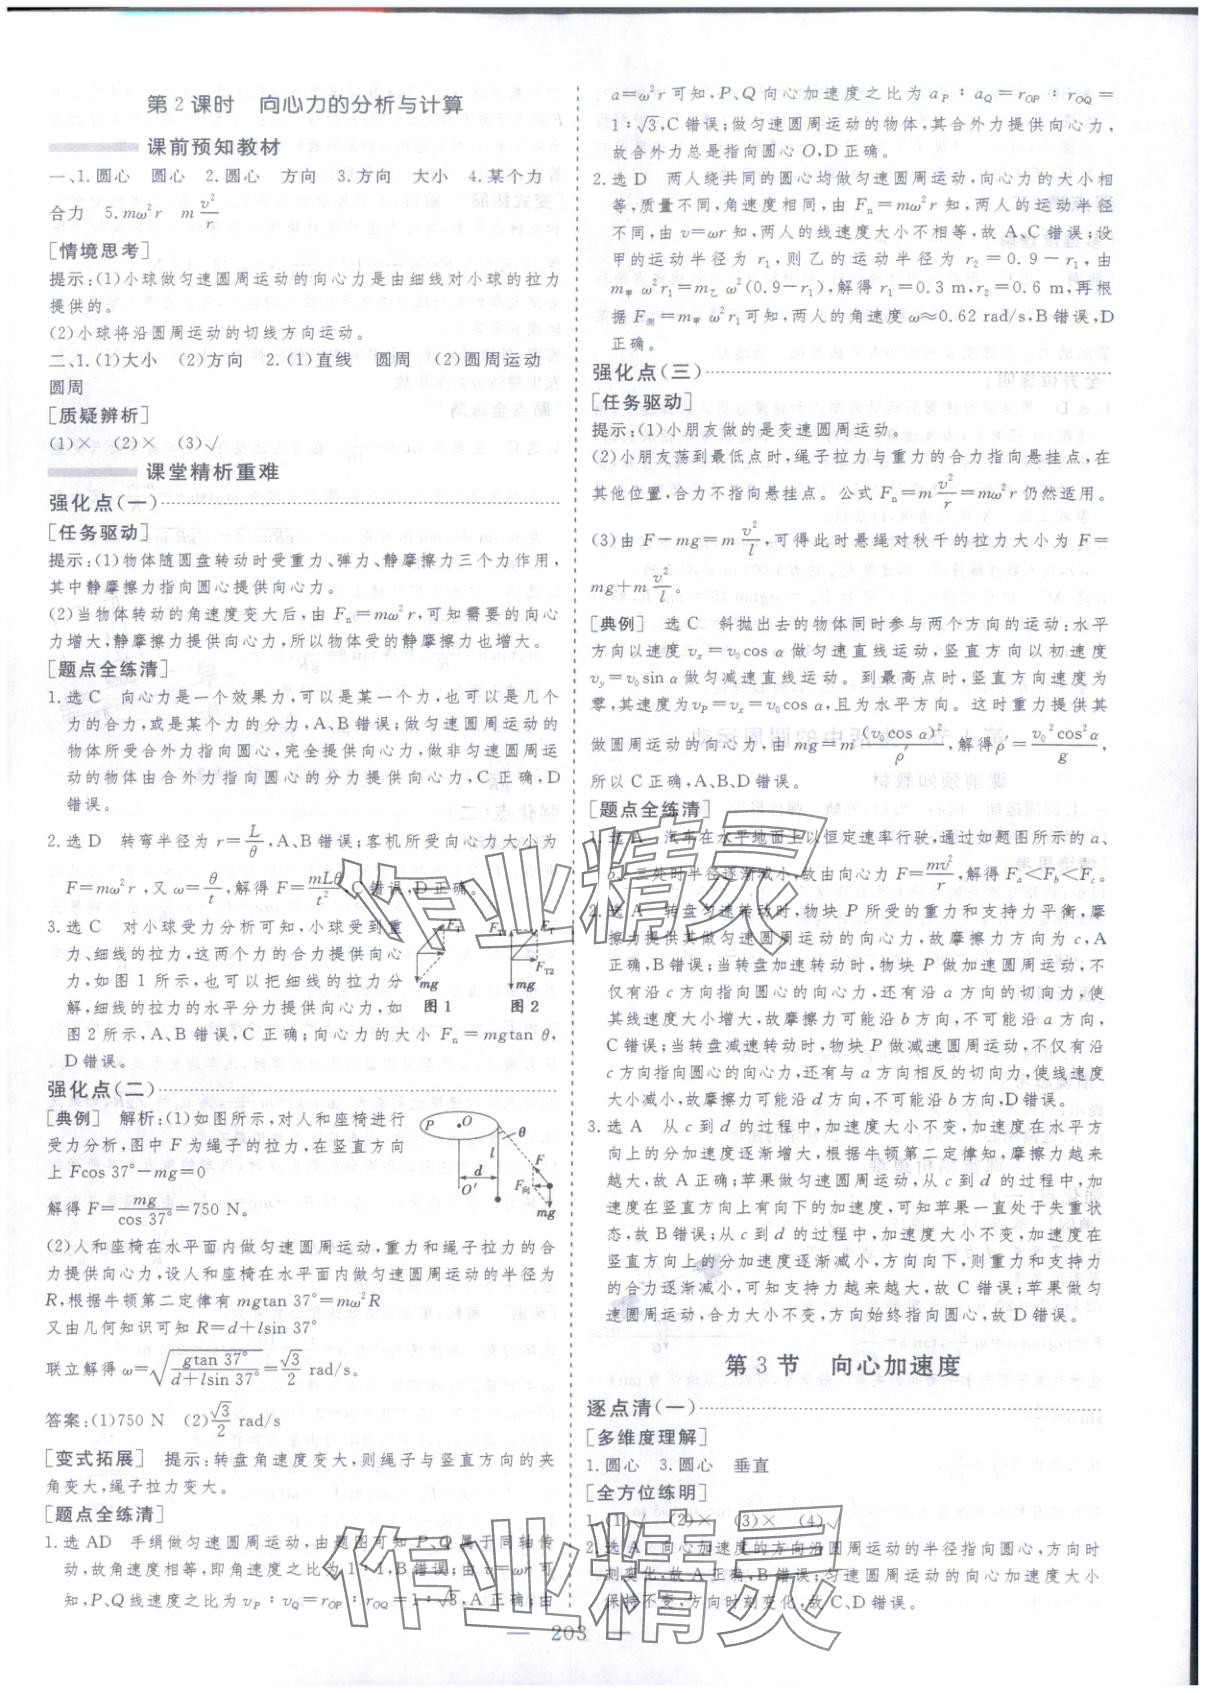 第2课时　向心力的分析与计算
课前预知教材
一、1.圆心　圆心　2.圆心　方向　3.方向　大小　4.某个力
合力　5.mω²r　m v²/r
[情境思考]
提示:(1)小球做匀速圆周运动的向心力是由细线对小球的拉力
提供的。
(2)小球将沿圆周运动的切线方向运动。
二、1.(1)大小　(2)方向　2.(1)直线　圆周　(2)圆周运动
圆周
[质疑辨析]
(1)×　(2)×　(3)√
课堂精析重难
强化点(一)
[任务驱动]
提示:(1)物体随圆盘转动时受重力、弹力、静摩擦力三个力作用,
其中静摩擦力指向圆心提供向心力。
(2)当物体转动的角速度变大后,由 Fn=mω²r,可知需要的向心
力增大,静摩擦力提供向心力,所以物体受的静摩擦力也增大。
[题点全练清]
1.选C　向心力是一个效果力,可以是某一个力,也可以是几个
力的合力,或是某个力的分力,A、B错误;做匀速圆周运动的
物体所受合外力指向圆心,完全提供向心力,做非匀速圆周运
动的物体由合外力指向圆心的分力提供向心力,C正确,D
错误。
2.选D　转弯半径为 r=L/θ,A、B错误;客机所受向心力大小为
F=mω²r,又 ω=θ/t,解得 F=mLθ/t²,C错误,D正确。
3.选C　对小球受力分析可知,小球受到重
力、细线的拉力,这两个力的合力提供向心
力,如图1所示,也可以把细线的拉力分
解,细线的拉力的水平分力提供向心力,如
图2所示,A、B错误,C正确;向心力的大小 Fn=mgtan θ,
D错误。
FT
mg
图1
FT1 FT
FT2
mg
图2
强化点(二)
[典例]　解析:(1)如图所示,对人和座椅进行
受力分析,图中F为绳子的拉力,在竖直方向
上 Fcos 37°-mg=0
解得 F=mg/cos 37°=750 N。
P O θ
l
d F
O′ F向
mg
(2)人和座椅在水平面内做匀速圆周运动,重力和绳子拉力的合
力提供向心力,设人和座椅在水平面内做匀速圆周运动的半径为
R,根据牛顿第二定律有 mgtan 37°=mω²R
又由几何知识可知 R=d+lsin 37°
联立解得 ω=√(gtan 37°/(d+lsin 37°))=√3/2 rad/s。
答案:(1)750 N　(2)√3/2 rad/s
[变式拓展]　提示:转盘角速度变大,则绳子与竖直方向的夹
角变大,绳子拉力变大。
[题点全练清]
1.选AD　手绢做匀速圆周运动,由题图可知P、Q属于同轴传
动,故角速度相等,即角速度之比为1∶1,B错误;由 v=ωr 可
知,P、Q线速度之比为 vP∶vQ=rOP∶rOQ=1∶√3,A正确;由
a=ω²r 可知,P、Q向心加速度之比为 aP∶aQ=rOP∶rOQ=
1∶√3,C错误;做匀速圆周运动的物体,其合外力提供向心力,
故合外力总是指向圆心O,D正确。
2.选D　两人绕共同的圆心均做匀速圆周运动,向心力的大小相
等,质量不同,角速度相同,由 Fn=mω²r 知,两人的运动半径
不同,由 v=ωr 知,两人的线速度大小不相等,故A、C错误;设
甲的运动半径为 r₁,则乙的运动半径为 r₂=0.9-r₁,由
m甲ω²r₁=m乙ω²(0.9-r₁),解得 r₁=0.3 m,r₂=0.6 m,再根
据 F测=m甲ω²r₁可知,两人的角速度 ω≈0.62 rad/s,B错误,D
正确。
强化点(三)
[任务驱动]
提示:(1)小朋友做的是变速圆周运动。
(2)小朋友荡到最低点时,绳子拉力与重力的合力指向悬挂点,在
其他位置,合力不指向悬挂点。公式 Fn=m v²/r=mω²r 仍然适用。
(3)由 F-mg=m v²/l,可得此时悬绳对秋千的拉力大小为 F=
mg+m v²/l。
[典例]　选C　斜抛出去的物体同时参与两个方向的运动:水平
方向以速度 vx=v₀cos α 做匀速直线运动,竖直方向以初速度
vy=v₀sin α 做匀减速直线运动。到最高点时,竖直方向速度为
零,其速度为 vP=vx=v₀cos α,且为水平方向。这时重力提供其
做圆周运动的向心力,由 mg=m (v₀cos α)²/ρ,解得 ρ=v₀²cos²α/g,
所以C正确,A、B、D错误。
[题点全练清]
1.选A　汽车在水平地面上以恒定速率行驶,通过如题图所示的a、
b、c三处时半径逐渐减小,故由向心力 F=mv²/r,解得 Fa<Fb<Fc。
2.选A　转盘匀速转动时,物块P所受的重力和支持力平衡,摩
擦力提供其做匀速圆周运动的向心力,故摩擦力方向为c,A
正确,B错误;当转盘加速转动时,物块P做加速圆周运动,不
仅有沿c方向指向圆心的向心力,还有沿a方向的切向力,使
其线速度大小增大,故摩擦力可能沿b方向,不可能沿a方向,
C错误;当转盘减速转动时,物块P做减速圆周运动,不仅有沿
c方向指向圆心的向心力,还有与a方向相反的切向力,使线速度
大小减小,故摩擦力可能沿d方向,不可能沿b方向,D错误。
3.选A　从c到d的过程中,加速度大小不变,加速度在水平方
向上的分加速度逐渐增大,根据牛顿第二定律知,摩擦力越来
越大,故A正确;苹果做匀速圆周运动,从c到d的过程中,加
速度在竖直方向上有向下的加速度,可知苹果一直处于失重状
态,故B错误;从c到d的过程中,加速度大小不变,加速度在
竖直方向上的分加速度逐渐减小,方向向下,则重力和支持力
的合力逐渐减小,可知支持力越来越大,故C错误;苹果做匀
速圆周运动,合力大小不变,方向始终指向圆心,故D错误。
第3节　向心加速度
逐点清(一)
[多维度理解]
1.圆心　3.圆心　垂直
[全方位练明]
1.(1)√　(2)×　(3)×　(4)√
2.选A　向心加速度的方向沿圆周运动的半径指向圆心,方向时
刻变化,故A正确,B错误;匀速圆周运动的向心加速度大小
保持不变,方向时刻变化,故C、D错误。
— 203 —
作业精灵
作业精灵